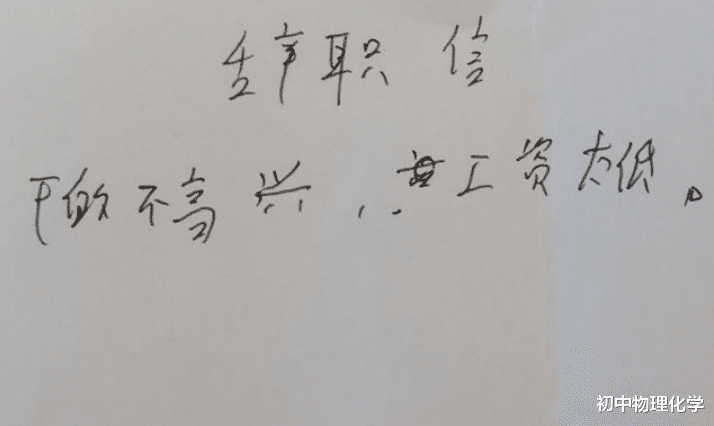 辞职信
干的不高兴,工资太低。
初中物理化学